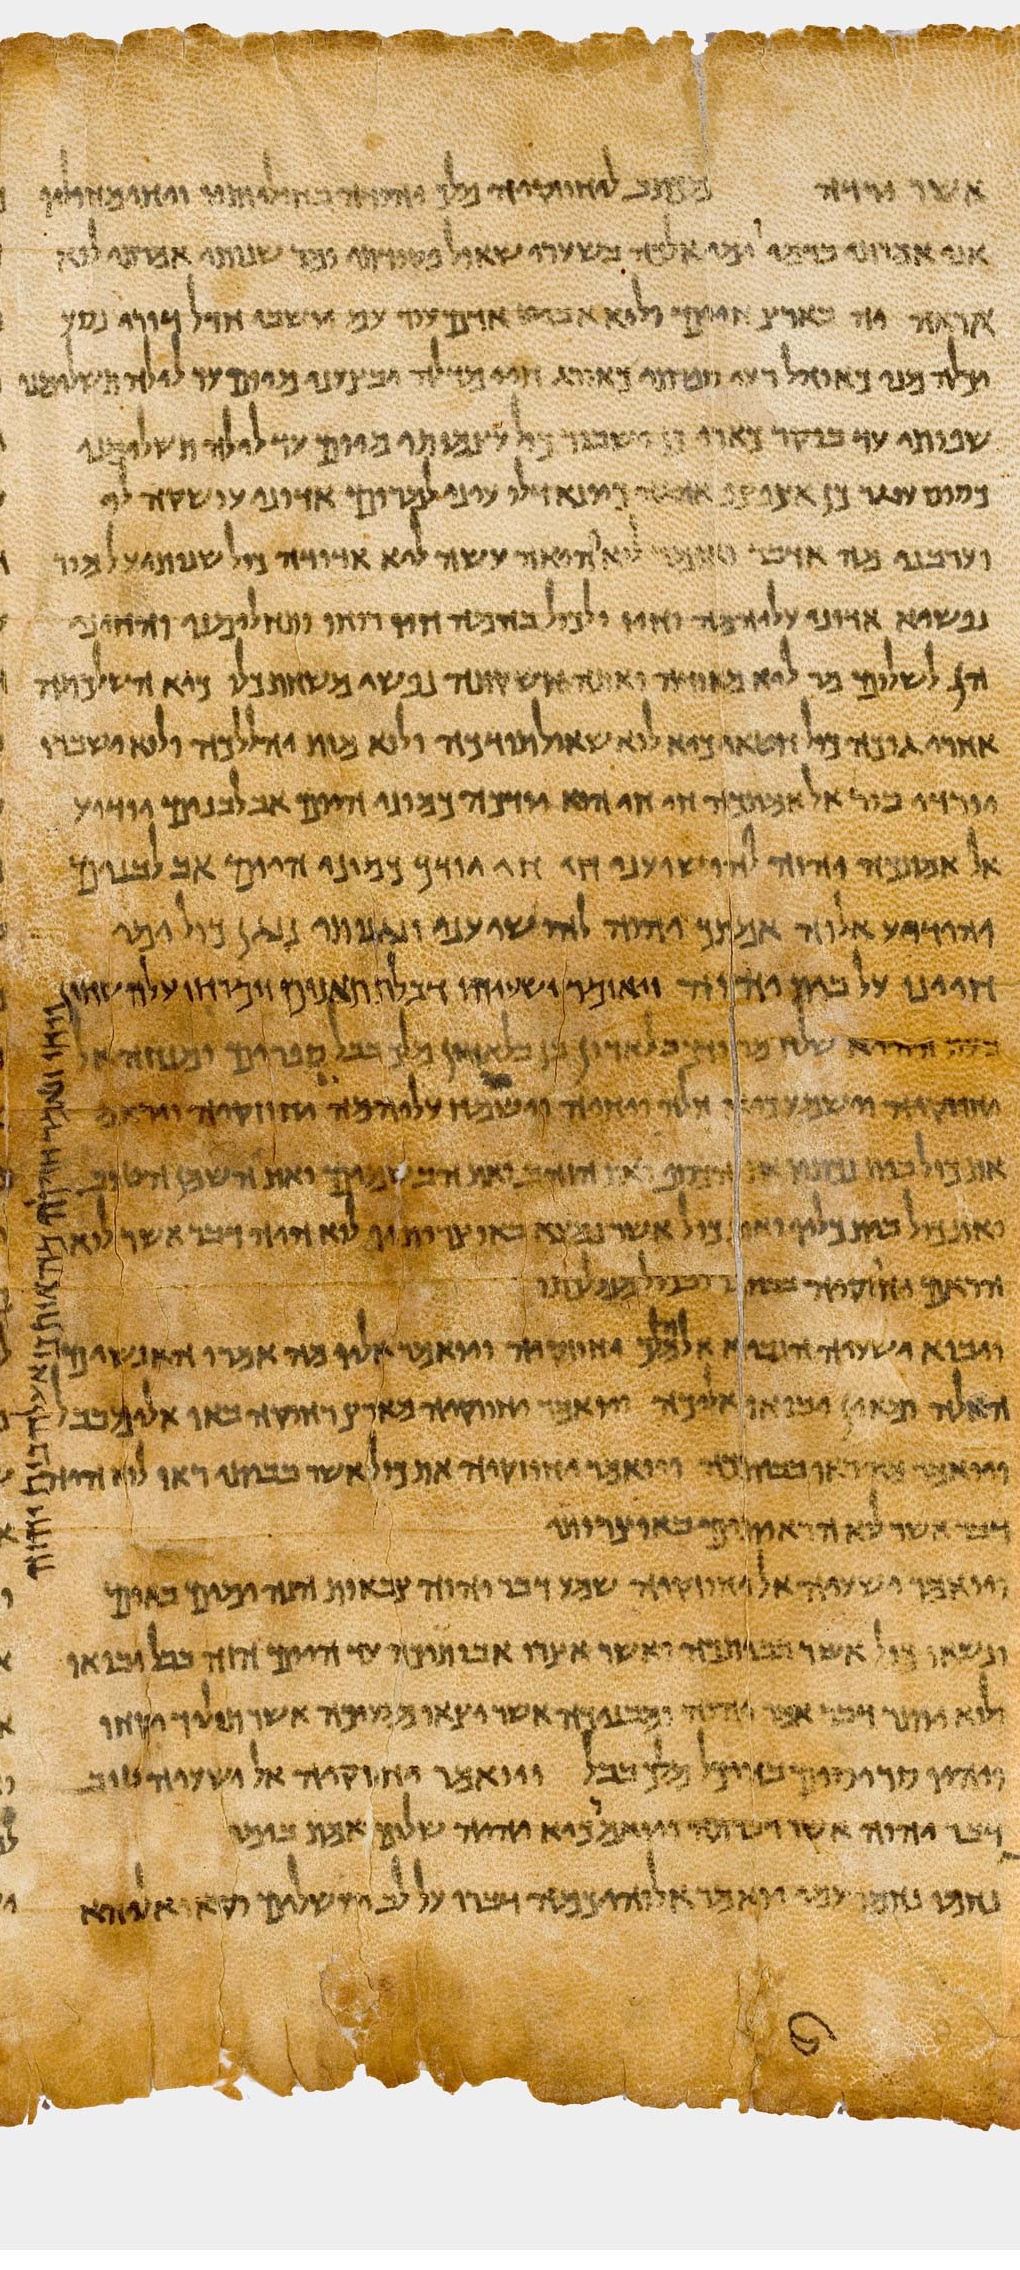 אשר ירדה מכתב לחוזקיה מלך יהודה בחוליותיו ויחי מחוליו
אני אמרתי בדמי ימי אלכה בשערי שאול פקודתי ומר שנותי אמרתי לוא
אראה יה בארץ חיים ולוא אביט אדם עוד עם יושבי חדל דורי נסע
יכלה מני כאוהל רעי ספרתי כאורג חיי מדלה יבצעני מיום עד לילה תשלימני
שפותי עד בוקר כארי כן ישבור כול עצמותי מיום עד לילה תשלימני
כסוס עוגר כן אצפצף אהגה כיונא דלו עיני למרום אדוני עושקה לי
וערבני מה אדבר ואומר ליא והואה עשה לוא אדודה כול שנותי על מור
נפשי אדוני עליהמה וחיו ולכול בהמה חיו רוחו ותחלימני והחיני
הן לשלום מר ליא מאודה ואתה חשקתה נפשי משחת כלי כיא השלכתה
אחרי גוכה כול חטאי כיא לוא שאול תודכה ולוא מות יהללכה ולוא ישברו
יורדי בור אל אמתכה חי חי הוא יודכה כמוני היום אב לבנים יודיע
אל אמתכה יהוה להושיעני חי חי יודך כמוני היום אב לבנים
יהודיע אלוה אמתך יהוה להושיעני ונגינותי ננגן כול ימי
חיינו על בית יהוה ויאומר ישעיהו דבלת תאנים וימרחו על השחין
ויחי ויאמר חזקיה מה אות כי אעלה בית יהוה
בעת ההיא שלח מרודך בלאדון בן בלאדן מלך בבל ספרים ומנחה אל
יחזקיה וישמע כיא חלה ויחיה וישמח עליהמה יחזקיה ויראם
את כול בית נכתיו את הכסף ואת הזהב ואת הבשמים ואת השמן הטוב
ואת כול בית כליו ואת כול אשר נמצא באוצרותיו לא היה דבר אשר לוא
הראם יחזקיה בביתו ובכול ממלכתו
ויבוא ישעיה הנביא אל המלך יחזקיה ויואמר אליו מה אמרו האנשים
האלה ומאין יבאו אליכה ויואמר יחזקיה מארץ רחוקה באו אלי מבבל
ויואמר מה ראו בביתכה ויואמר יחזקיה את כול אשר בביתי ראו לוא היה
דבר אשר לא הראיתים באוצרותי
ויואמר ישעיה אל יחזקיה שמע דבר יהוה צבאות הנה ימים באים
ונשאו כול אשר בביתכה ואשר אצרו אבותיכה עד היום הזה בבל יבואו
ולוא יותר דבר אמר יהוה ומבניכה אשר יצאו ממעיכה אשר תוליד יקחו
והיו סריסים בהיכל מלך בבל ויואמר יחזקיה אל ישעיה טוב
דבר יהוה אשר דברתה ויואמר כיא יהיה שלום אמת בימי
נחמו נחמו עמי יואמר אלוהיכמה דברו על לב ירושלים וקראו אליהא